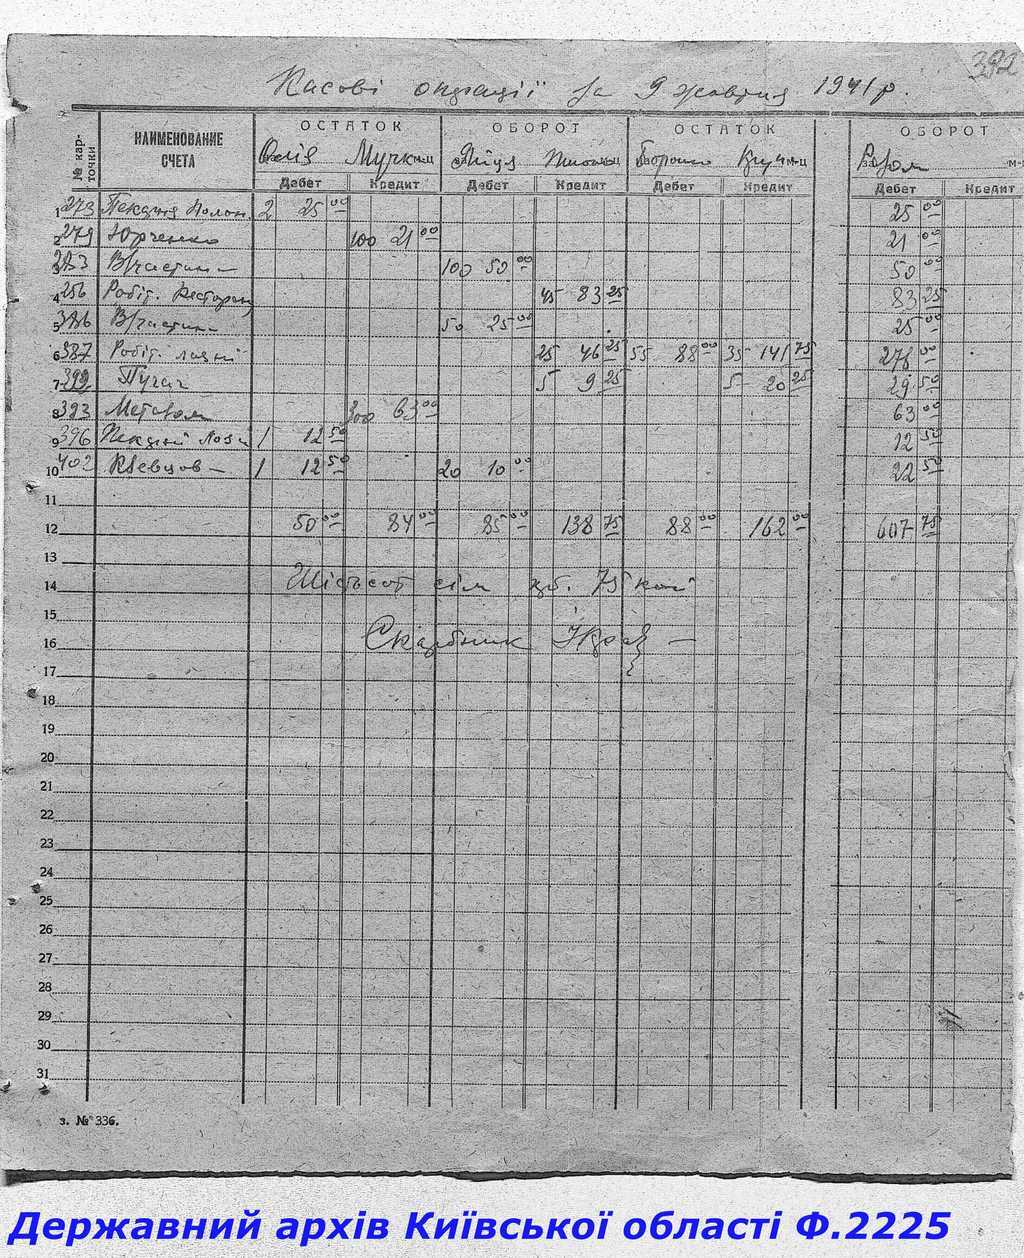 392
Касові операції за 9 жовтня 1941 р.
№ кар-точки НАИМЕНОВАНИЕ СЧЕТА ОСТАТОК ОБОРОТ ОСТАТОК ОБОРОТ
Олія
Дебет Кредит Дебет Кредит Дебет Кредит Дебет Кредит
1 273 2 25 00 25 00
2 279 Юрченко 100 21 00 21 00
3 В/частина 100 50 00 50 00
4 256 Робіт. 45 83 25 83 25
5 386 В/частина 50 25 00 25 00
6 387 Робіт. 25 46 25 55 88 00 35 141 75 276 00
7 392 Пугач 5 9 25 5 20 25 29 50
8 393 300 63 00 63 00
9 396 1 12 50 12 50
10 402 1 12 50 20 10 00 22 50
11
12 50 00 84 00 85 00 138 75 88 00 162 00 607 75
13
14 Шістсот сім крб. 75 коп
15
16 Скарбник
17
18
19
20
21
22
23
24
25
26
27
28
29
30
31
з. № 336.
Державний архів Київської області Ф.2225